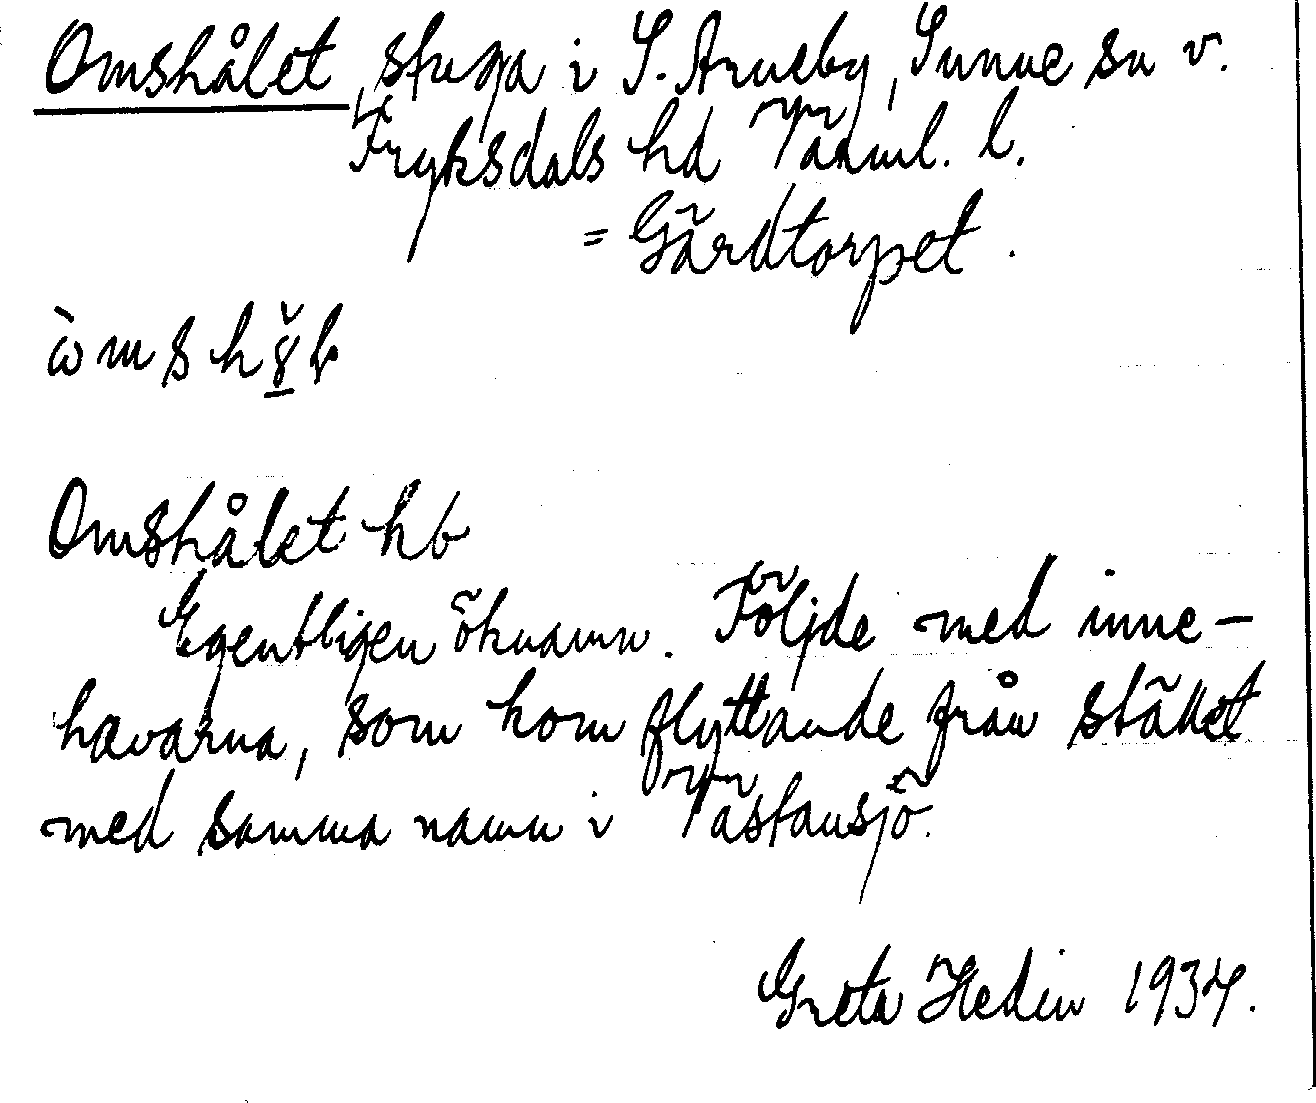 Omshålet, stuga i S. Arneby, Sunne sn v.
Fryksdals hd Värml. l.
= Gärdtorpet.
Omshålet hb
Egentligen öknamn. Följde med inne-
havarna, som kom flyttande från stället
med samma namn i Västansjö.
Greta Hedin 1934.